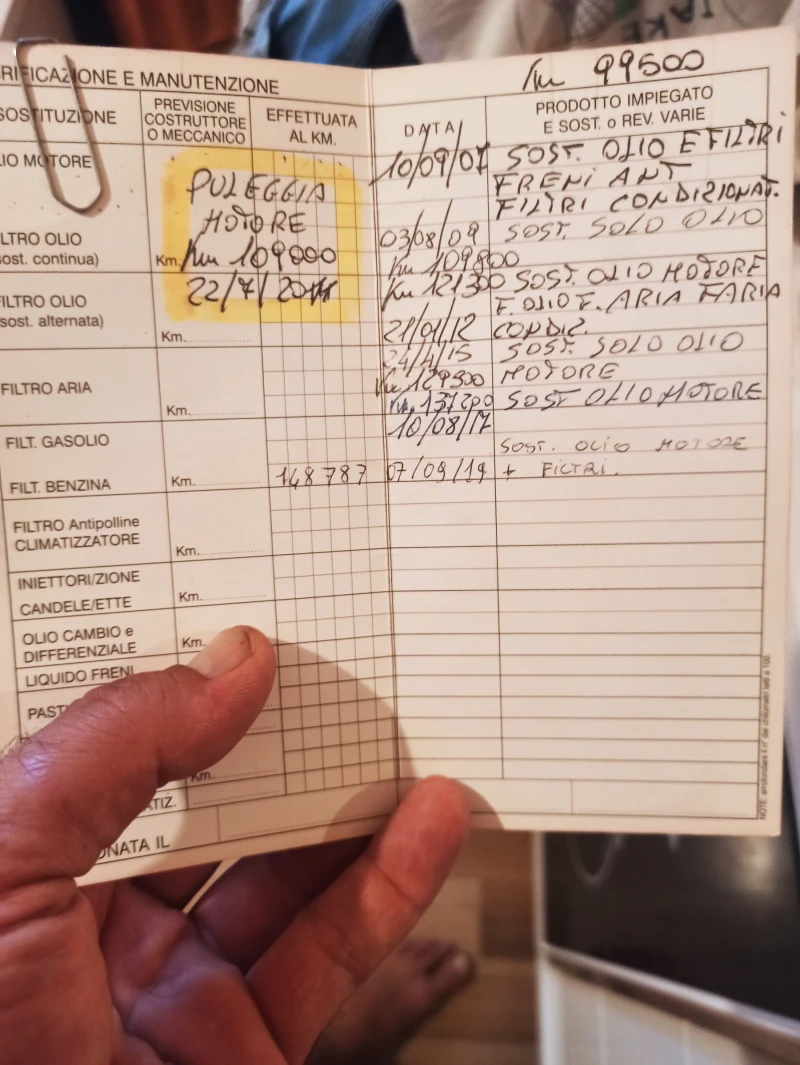 RIFICAZIONE E MANUTENZIONE
Km 99500
SOSTITUZIONE
PREVISIONE
COSTRUTTORE
O MECCANICO
EFFETTUATA
AL KM.
DATA
PRODOTTO IMPIEGATO
E SOST. o REV. VARIE
IO MOTORE
10/09/07 SOST. OLIO E FILTRI
FRENI ANT
FILTRI CONDIZIONAT.
PULEGGIA
MOTORE
Km 109000
22/7/2011
03/08/09 SOST. SOLO OLIO
Km 109800
LTRO OLIO
sost. continua)
Km.
Km 121300 SOST. OLIO MOTORE
F. OLIO F. ARIA FARIA
21/01/12 CONDIZ.
FILTRO OLIO
sost. alternata)
Km.
24/4/15 SOST. SOLO OLIO
Km 129500 MOTORE
FILTRO ARIA
Km.
Km. 137200 SOST OLIO MOTORE
10/08/17
FILT. GASOLIO
SOST. OLIO MOTORE
FILT. BENZINA
Km.
148787 07/09/19 + FILTRI.
FILTRO Antipolline
CLIMATIZZATORE
Km.
INIETTORI/ZIONE
CANDELE/ETTE
Km.
OLIO CAMBIO e
DIFFERENZIALE
Km.
LIQUIDO FRENI
PAST
Km.
ATIZ.
ONATA IL
NOTE: arrotondare il n° dei chilometri fatti a 100.